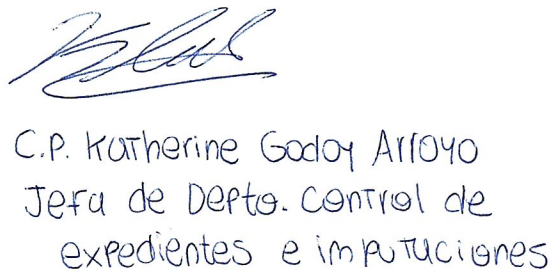 C.P. Katherine Godoy Arroyo
Jefa de Depto. Control de
expedientes e imputaciones